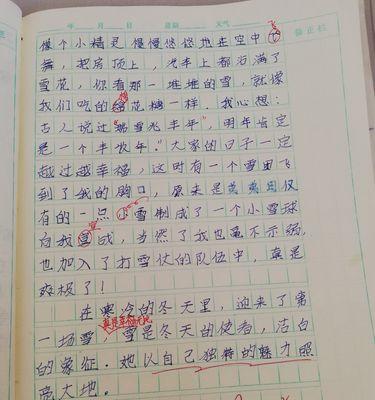 年 月 日 星期 天气
像个小精灵慢慢悠悠地在空中飞
舞,把房顶上,汽车上都沾满了
雪花,你看那一堆堆的雪,就像
我们吃的棉花糖一样。我心想:
古人说过“瑞雪兆丰年”,明年肯定
是一个丰收年。”大家的日子一定
越过越幸福,这时有一个雪团飞
到了我的胸口,原来是黄禹用仅
有的一点小雪制成了一个小雪球
向我宣战,当然了我也毫不示弱,
也加入了打雪仗的队伍中,真是
爽极了!
在寒冷的冬天里,迎来了第
一场雪 雪是冬天的使者,洁白
的象征.她以自己独特的魅力照
亮大地.